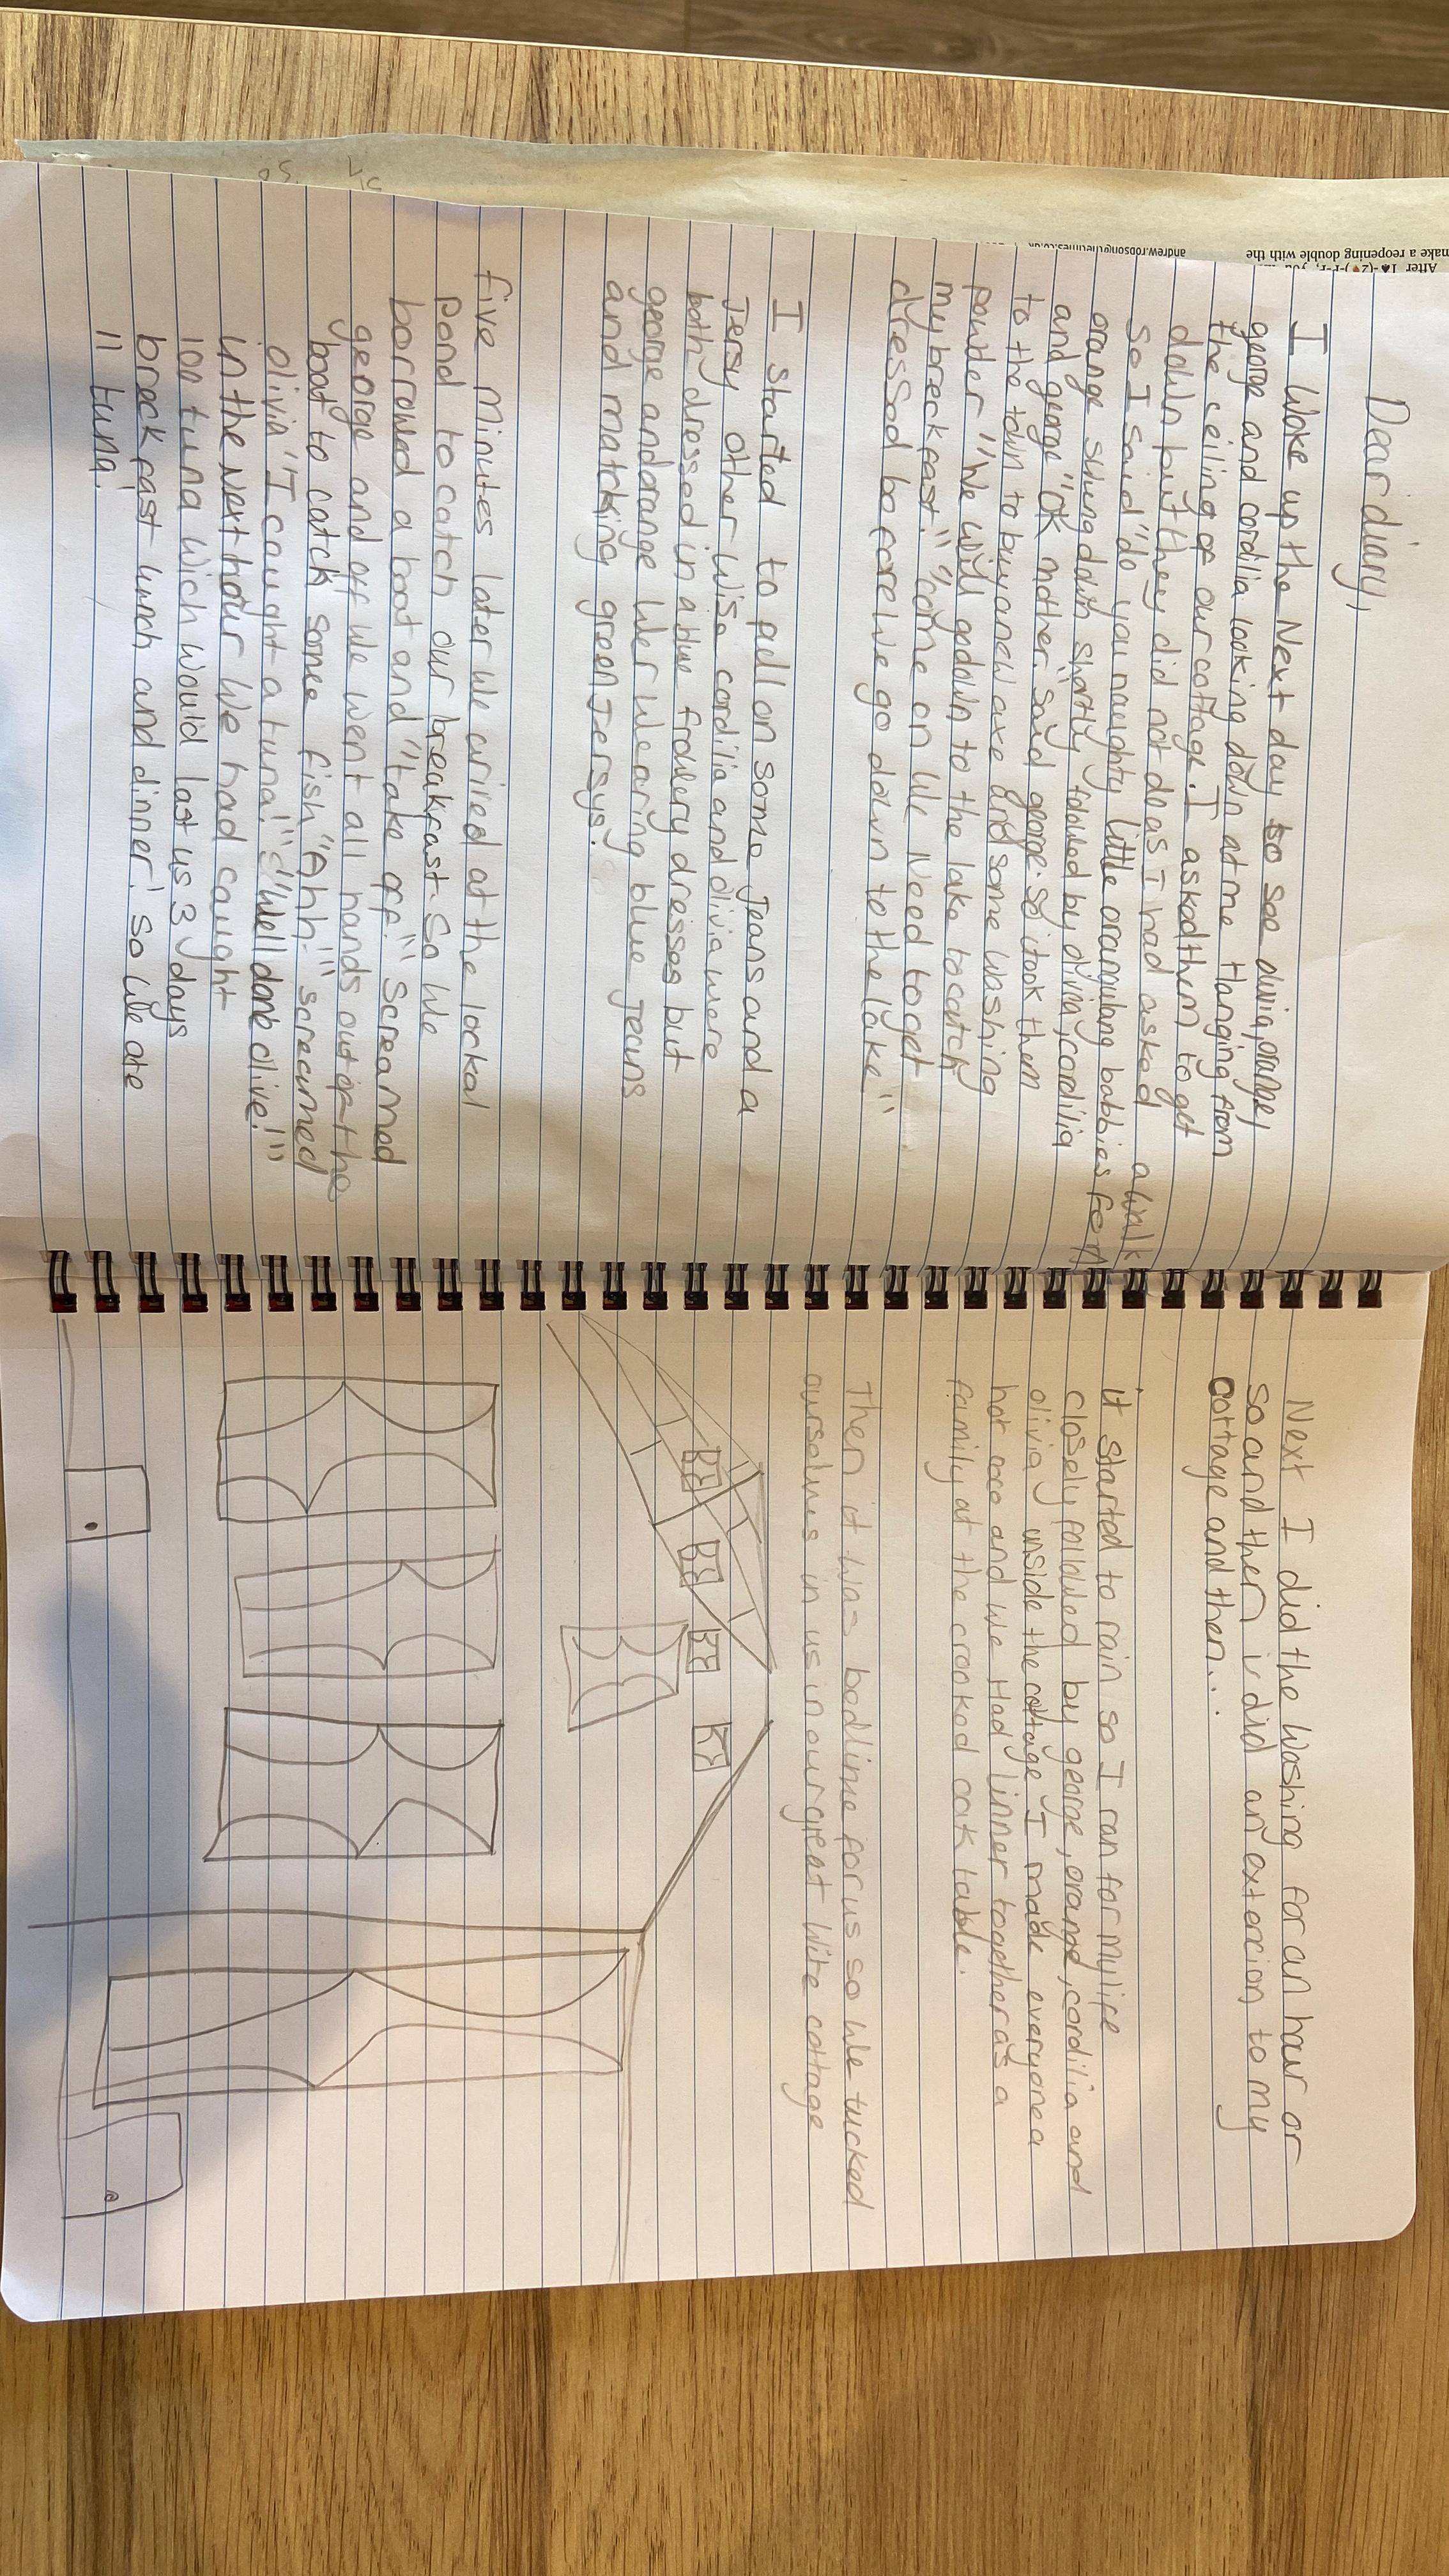 Dear diary,
I woke up the Next day to see olivia, orange,
george and cordilia looking down at me Hanging from
the ceiling of our cottage. I asked them to get
down but they did not do as I had asked
so I said "do you naughty little orangutang babbies fon a walk
orange swung down shortly followed by olivia, cordilia
and george "OK mother" said george. so i took them
to the town to buy a new axe and some washing
powder "We will go down to the lake to catch
my breckfast." "come on we need to get
dressed before we go down to the lake"
I started to pull on some jeans and a
Jersy other wise cordilia and olivia were
both dressed in a blue frowlery dresses but
george and orange wer wearing blue jeans
and matching green jersys.
five minutes later we arived at the lockal
pond to catch our breakfast. So we
borrowed a boat and "take off." screamed
george and off we went all hands out of the
boat to catch some fish "Ahh!" screamed
olivia "I caught a tuna!" "Well done olive!"
in the next hour we had caught
100 tuna wich would last us 3 days
breckfast lunch and dinner! so we ate
11 tuna!
Next I did the washing for an hour or
so and then i did an extercion to my
cottage and then...
it started to rain so I ran for my life
closely followed by george, orange, cordilia and
olivia inside the cottage I made everyone a
hot coco and we Had linner together as a
family at the crooked oak table.
Then it was bedtime for us so we tucked
ourselves in us in our great wite cottage
make a reopening double with the
andrew.robson@thetimes.co.uk